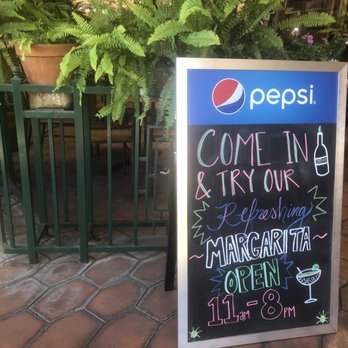 pepsi
COME IN
& TRY OUR
Refreshing
MARGARITA
OPEN
11am-8PM